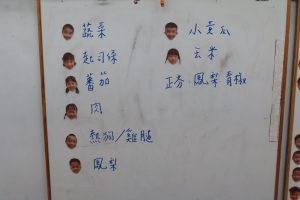 蔬菜
起司條
蕃茄
肉
熱狗/雞腿
鳳梨
小黃瓜
玄米
鳳梨 青椒